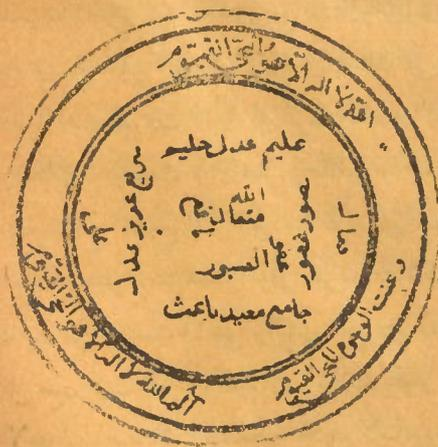 الله لا اله الا هو الحي القيوم
وعنت الوجوه للحي القيوم
الم الله لا اله الا هو الحي القيوم
عليم عدل حليم
الله
متعال
الصبور
جامع معيد باعث
صبور غفور
عزيز عدل